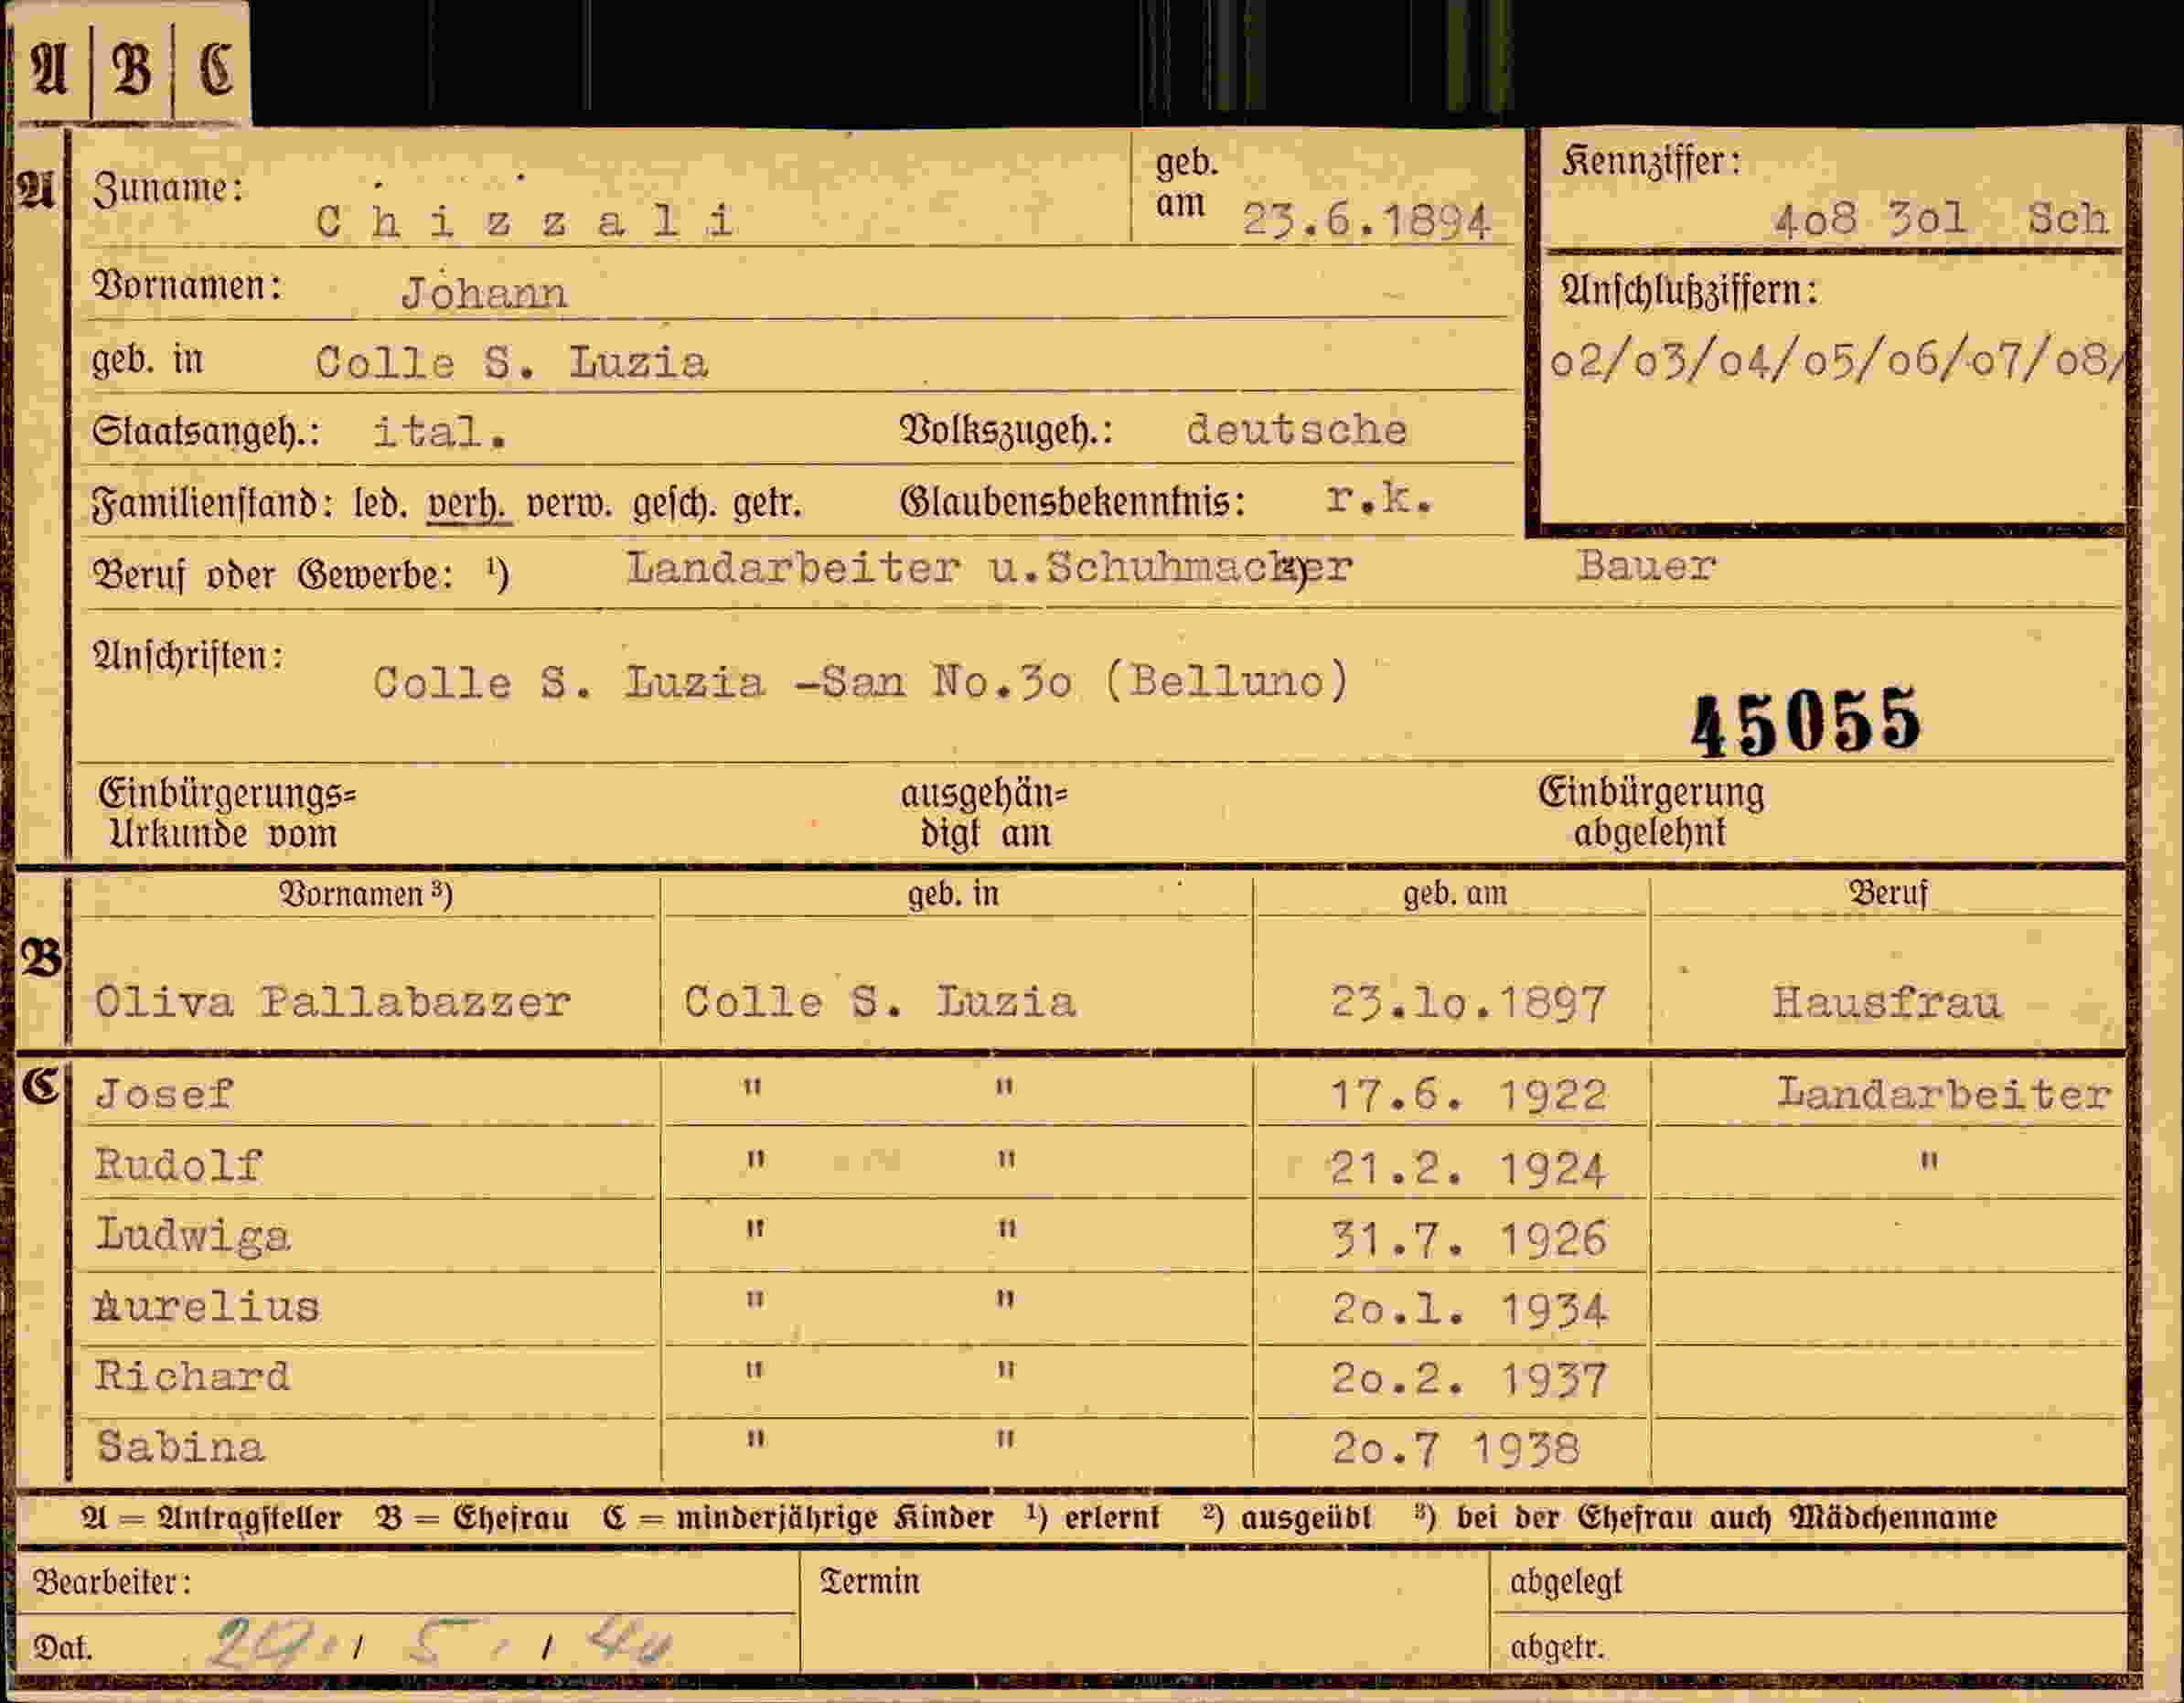 A | B | C
A Zuname: Chizzali geb. am 23.6.1894 Kennziffer: 4o8 3ol Sch
Vornamen: Johann Anschlußziffern:
geb. in Colle S. Luzia o2/o3/o4/o5/o6/o7/o8/
Staatsangeh.: ital. Volkszugeh.: deutsche
Familienstand: led. verh. verw. gesch. getr. Glaubensbekenntnis: r.k.
Beruf oder Gewerbe: ¹) Landarbeiter u.Schuhmacher ²) Bauer
Anschriften: Colle S. Luzia -San No.3o (Belluno)
45055
Einbürgerungs= ausgehän= Einbürgerung
Urkunde vom digt am abgelehnt
Vornamen ³) geb. in geb. am Beruf
B Oliva Pallabazzer Colle S. Luzia 23.lo.1897 Hausfrau
C Josef " " 17.6. 1922 Landarbeiter
Rudolf " " 21.2. 1924 "
Ludwiga " " 31.7. 1926
Aurelius " " 2o.l. 1934
Richard " " 2o.2. 1937
Sabina " " 2o.7 1938
A = Antragsteller B = Ehefrau C = minderjährige Kinder ¹) erlernt ²) ausgeübt ³) bei der Ehefrau auch Mädchenname
Bearbeiter: Termin abgelegt
Dat. 29. / 5. / 40 abgetr.